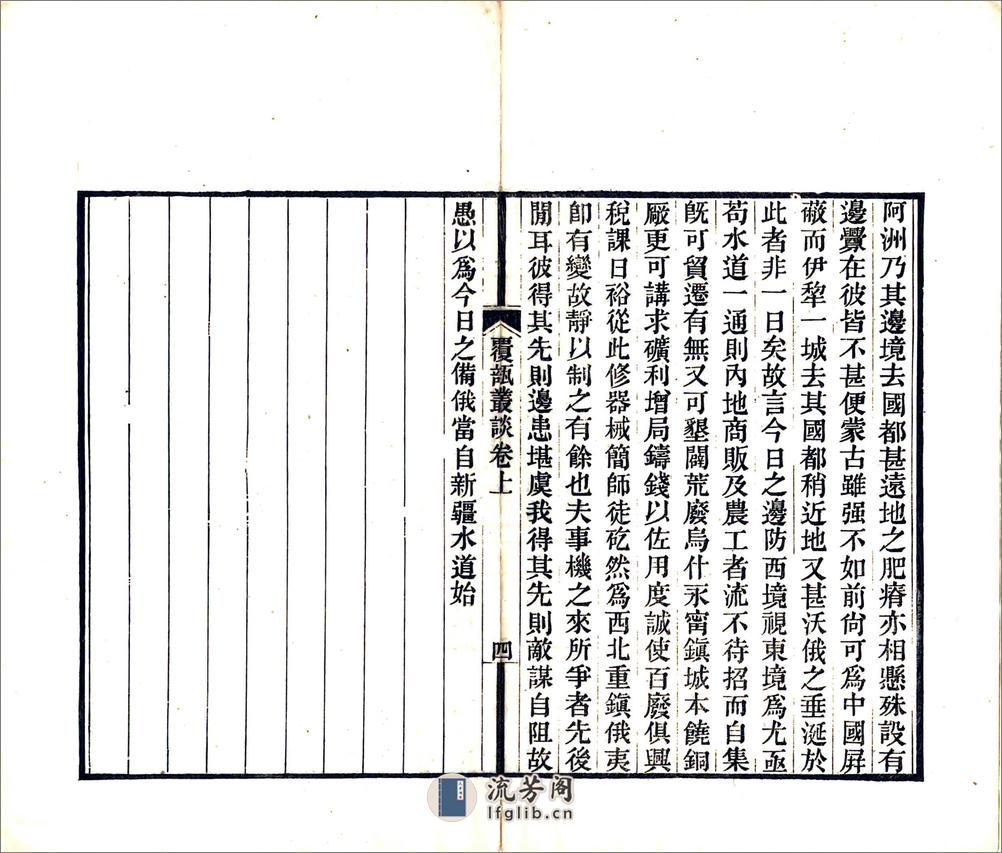 阿洲乃其邊境去國都甚遠地之肥瘠亦相懸殊設有
邊釁在彼皆不甚便蒙古雖强不如前尙可爲中國屛
蔽而伊犂一城去其國都稍近地又甚沃俄之垂涎於
此者非一日矣故言今日之邊防西境視東境爲尤亟
苟水道一通則內地商販及農工者流不待招而自集
旣可貿遷有無又可墾闢荒廢烏什永甯鎭城本饒銅
厰更可講求礦利增局鑄錢以佐用度誠使百廢俱興
稅課日裕從此修器械簡師徒矻然爲西北重鎭俄夷
卽有變故靜以制之有餘也夫事機之來所爭者先後
閒耳彼得其先則邊患堪虞我得其先則敵謀自阻故
覆瓿叢談卷上
四
愚以爲今日之備俄當自新疆水道始
流芳阁
lfglib.cn